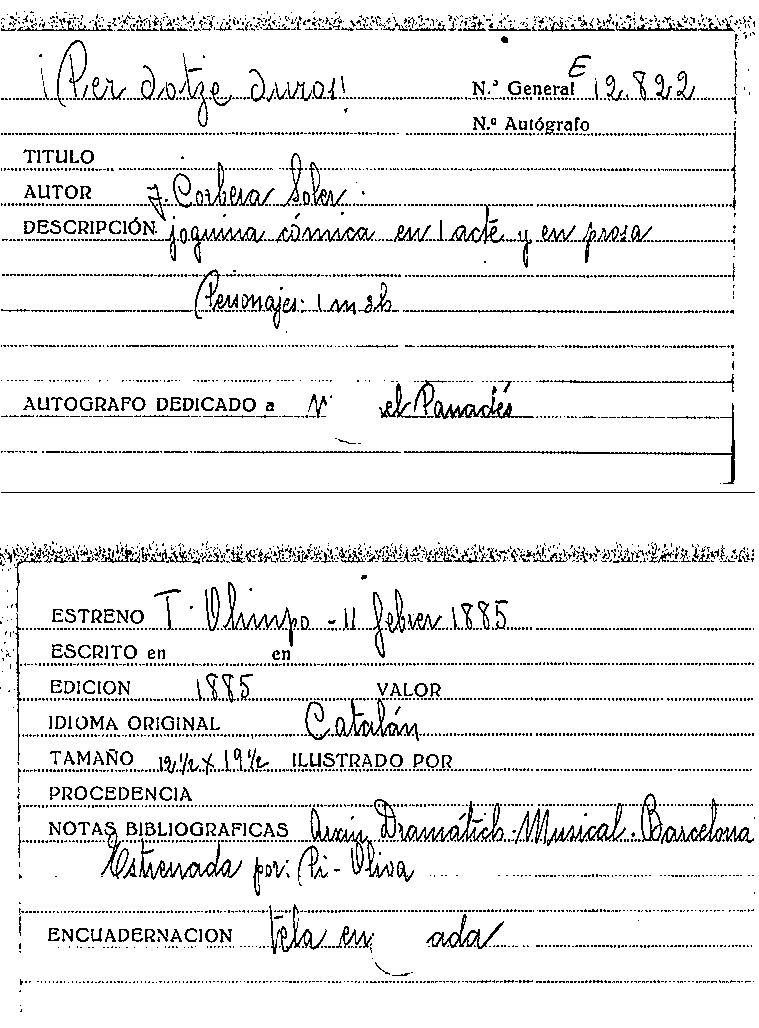 ¡Per dotze duros!
N.º General E 12.822
N.º Autógrafo
TITULO
AUTOR J. Corbera Soler.
DESCRIPCIÓN joguina cómica en 1 acte y en prosa
Personajes: 1 m 3 h
AUTOGRAFO DEDICADO a el Panadés
ESTRENO T. Olimpo - 11 febrer 1885
ESCRITO en en
EDICION 1885 VALOR
IDIOMA ORIGINAL Catalán
TAMAÑO 12 1/2 x 19 1/2 ILUSTRADO POR
PROCEDENCIA
NOTAS BIBLIOGRAFICAS Arxiu Dramátich-Musical. Barcelona
Estrenada por: Pi - Oliva
ENCUADERNACION tela en ada